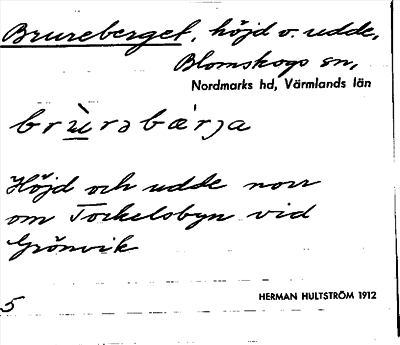 Brureberget, höjd o. udde,
Blomskogs sn,
Nordmarks hd, Värmlands län
brùrəbæ'rʒa
Höjd och udde norr
om Torkelsbyn vid
Grönvik
5
HERMAN HULTSTRÖM 1912